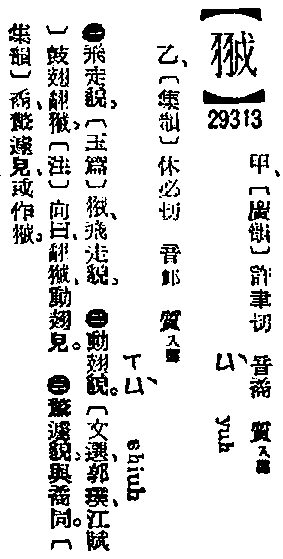 【䎀】
29313
甲、〔廣韻〕許聿切 音矞 質入聲
ㄩˋ yuh
乙、〔集韻〕休必切 音卹 質入聲
ㄒㄩˋ shiuh
㊀飛走貌。〔玉篇〕䎀、飛走貌。㊁動翅貌。〔文選、郭璞、江賦
〕鼓翅翻䎀。〔注〕向曰、翻䎀、動翅皃。㊂驚遽貌。與矞同。〔
集韻〕矞、驚遽皃、或作䎀。